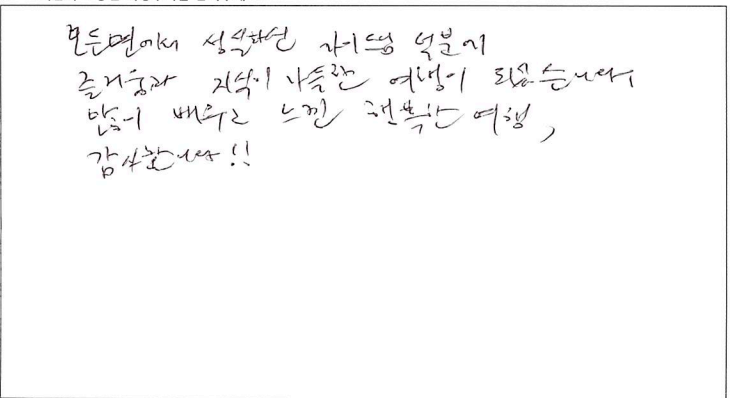 모든면에서 성실하신 가이드님 덕분에
즐거움과 지식이 가득한 여행이 되었습니다.
많이 배우고 느낀 행복한 여행,
감사합니다!!